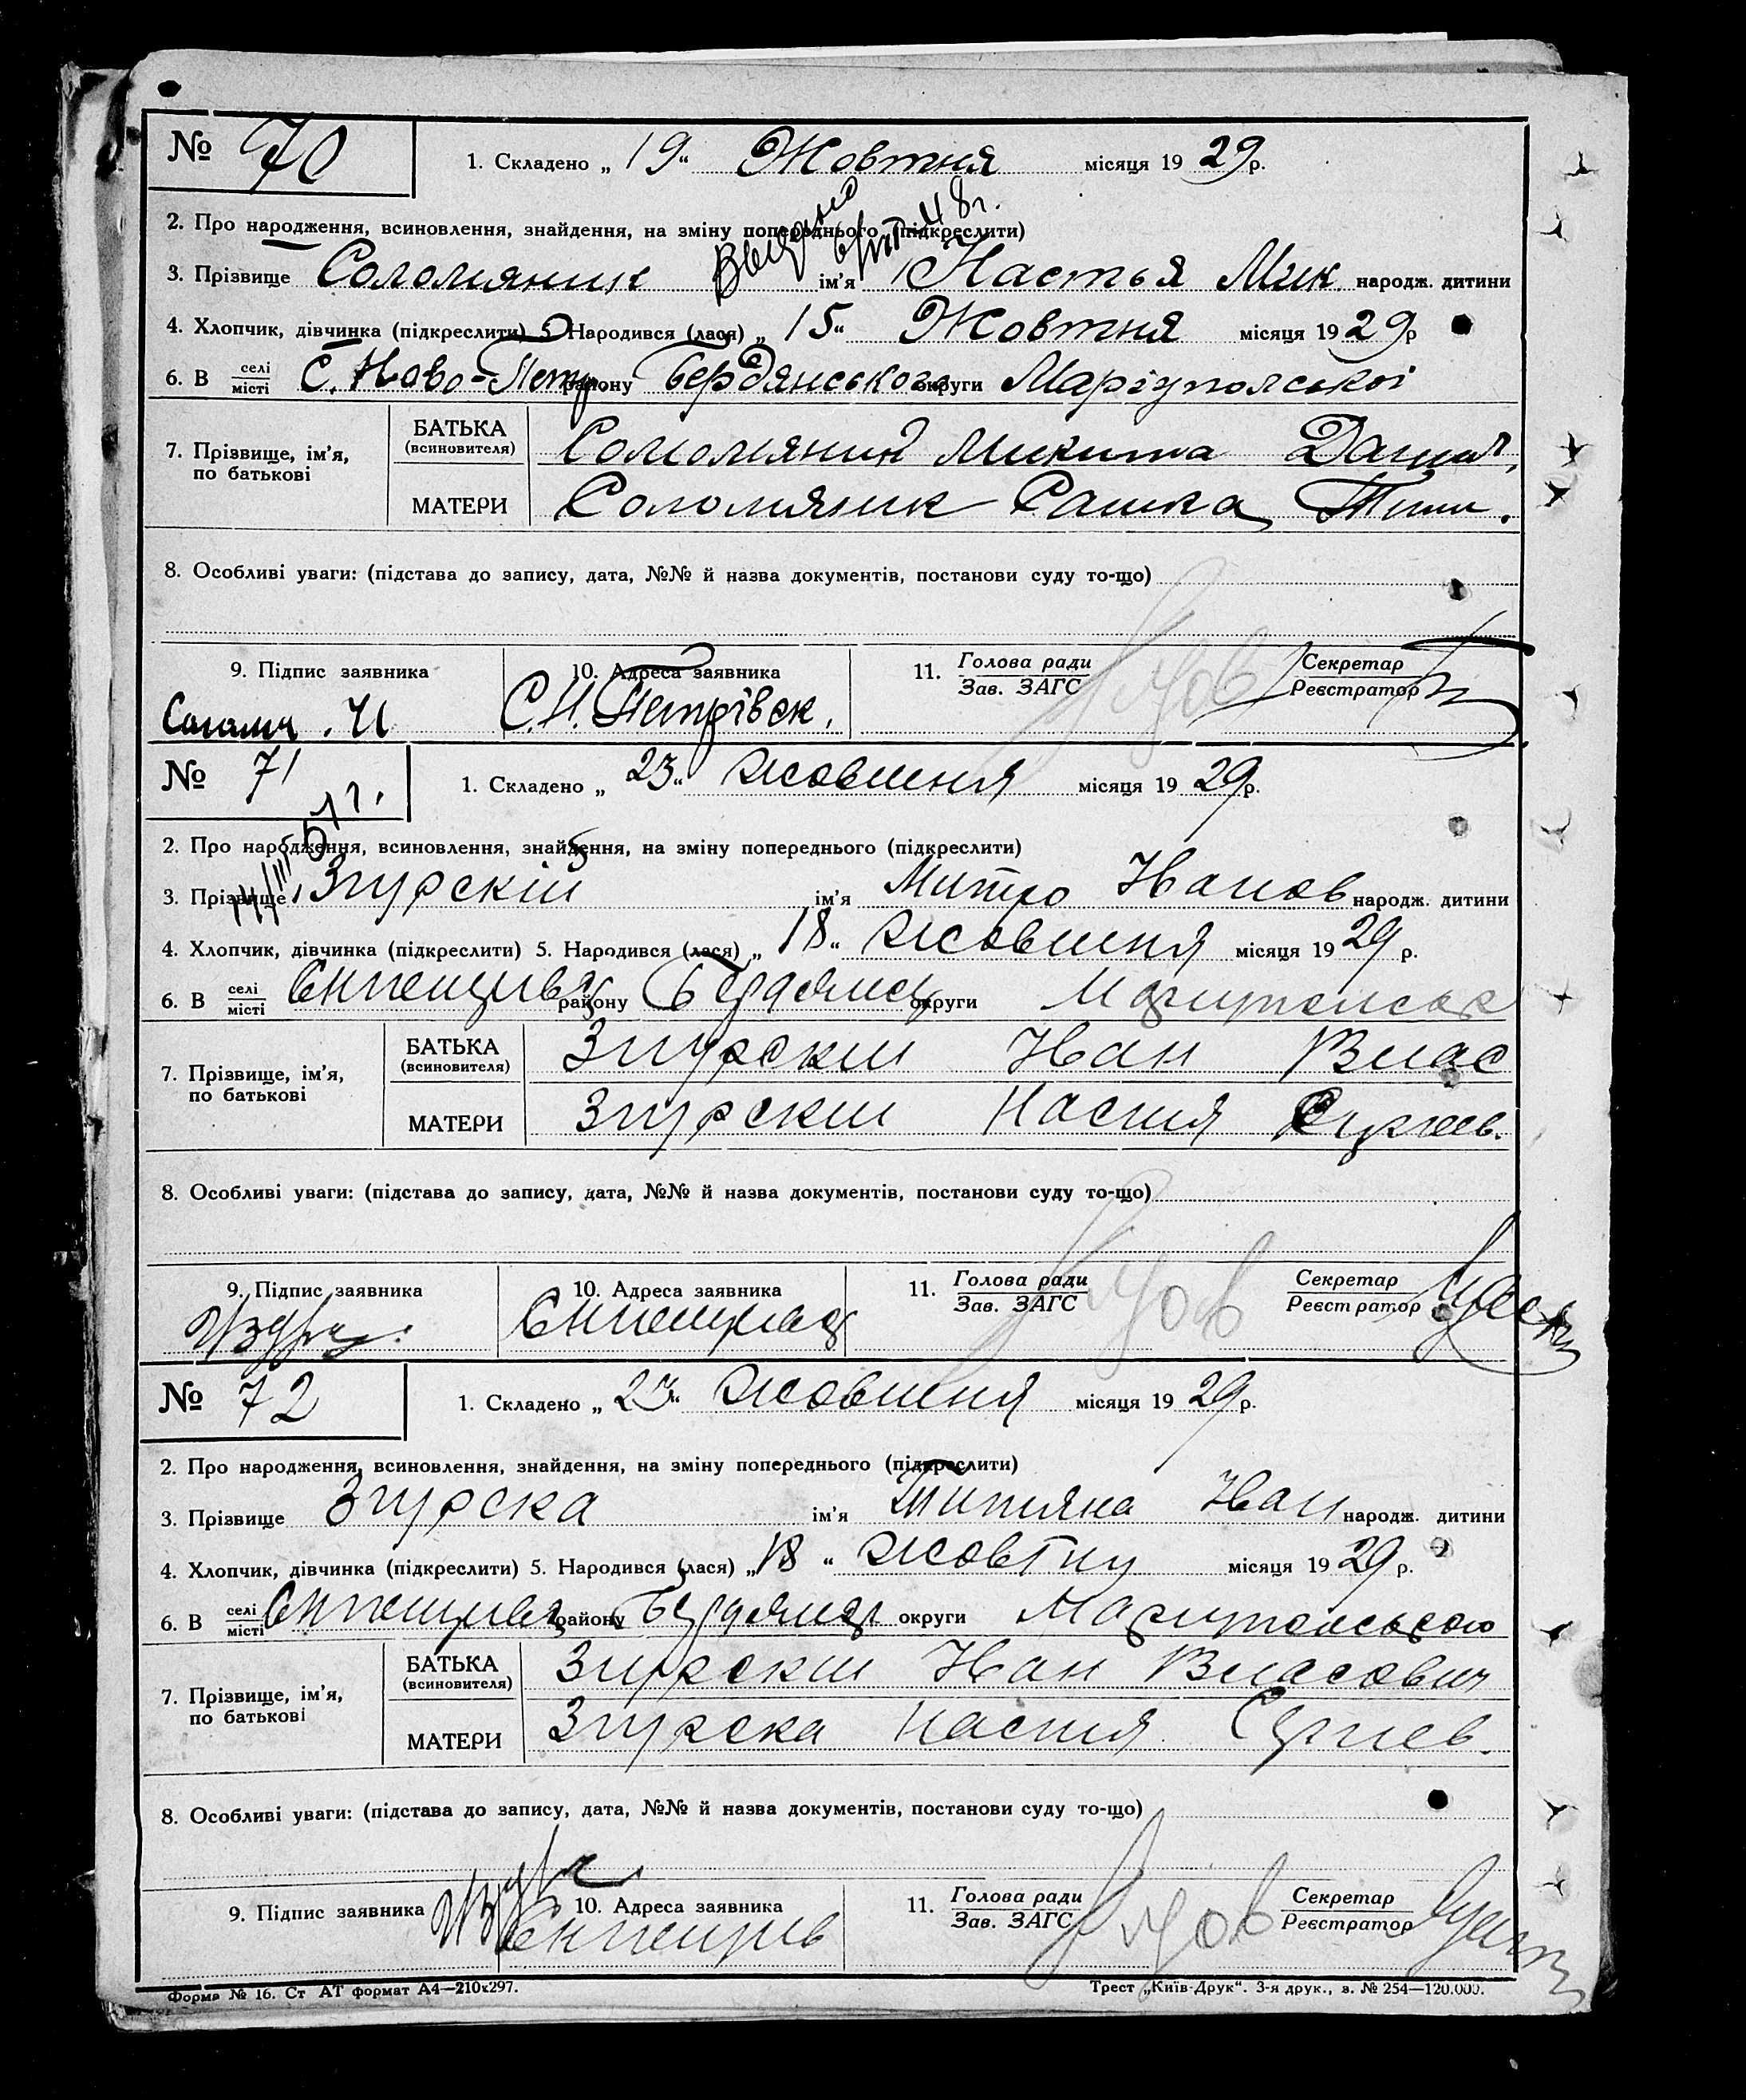 № 70 1. Складено „ 19 “ Жовтня місяця 19 29 р.
2. Про народження, всиновлення, знайдення, на зміну попереднього (підкреслити)
48 г.
3. Прізвище Соломяник ім'я Настья Мик. народж. дитини
4. Хлопчик, дівчинка (підкреслити) 5. Народився (лася) „ 15 “ Жовтня місяця 19 29 р
6. В селі/місті С. Ново-Петр району Бердянського округи Маріупольскої
7. Прізвище, ім'я, по батькові
БАТЬКА (всиновителя) Соломяник Микита Данил.
МАТЕРИ Соломяник Сашка Тим.
8. Особливі уваги: (підстава до запису, дата, №№ й назва документів, постанови суду то-що)
9. Підпис заявника 10. Адреса заявника 11. Голова ради/Зав. ЗАГС Секретар/Реєстратор
С. Н. Петрівск.
№ 71 1. Складено „ 23 “ жовтня місяця 19 29 р.
51 г.
2. Про народження, всиновлення, знайдення, на зміну попереднього (підкреслити)
3. Прізвище Згурскій ім'я Митро Иванов народж. дитини
4. Хлопчик, дівчинка (підкреслити) 5. Народився (лася) „ 18 “ жовтня місяця 19 29 р.
6. В селі/місті району округи
7. Прізвище, ім'я, по батькові
БАТЬКА (всиновителя) Згурский Иван Влас
МАТЕРИ Згурский Настя
8. Особливі уваги: (підстава до запису, дата, №№ й назва документів, постанови суду то-що)
9. Підпис заявника 10. Адреса заявника 11. Голова ради/Зав. ЗАГС Секретар/Реєстратор
№ 72 1. Складено „ 23 “ жовтня місяця 19 29 р.
2. Про народження, всиновлення, знайдення, на зміну попереднього (підкреслити)
3. Прізвище Згурска ім'я Титяна Иван народж. дитини
4. Хлопчик, дівчинка (підкреслити) 5. Народився (лася) „ 18 “ жовтну місяця 19 29 р.
6. В селі/місті району округи
7. Прізвище, ім'я, по батькові
БАТЬКА (всиновителя) Згурский Иван Власович
МАТЕРИ Згурска Настя
8. Особливі уваги: (підстава до запису, дата, №№ й назва документів, постанови суду то-що)
9. Підпис заявника 10. Адреса заявника 11. Голова ради/Зав. ЗАГС Секретар/Реєстратор
Форма № 16. Ст АТ формат А4—210х297. Трест „Київ-Друк“. 3-я друк., з. № 254—120.000.